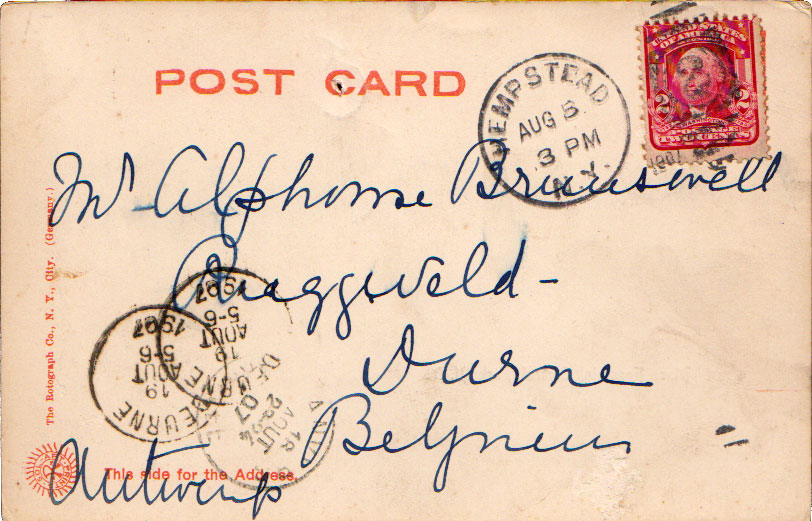 POST CARD
HEMPSTEAD
AUG 5
3 PM
N.Y.
1907
UNITED STATES
OF AMERICA
2 2
Mr Alphonse
Durne
Belgium
Antwerp
The Rotograph Co., N. Y., City. (Germany.)
DEURNE
19
AOUT
5-6
1907
DEURNE
19
AOUT
5-6
1907
18
AOUT
07
This side for the Address.